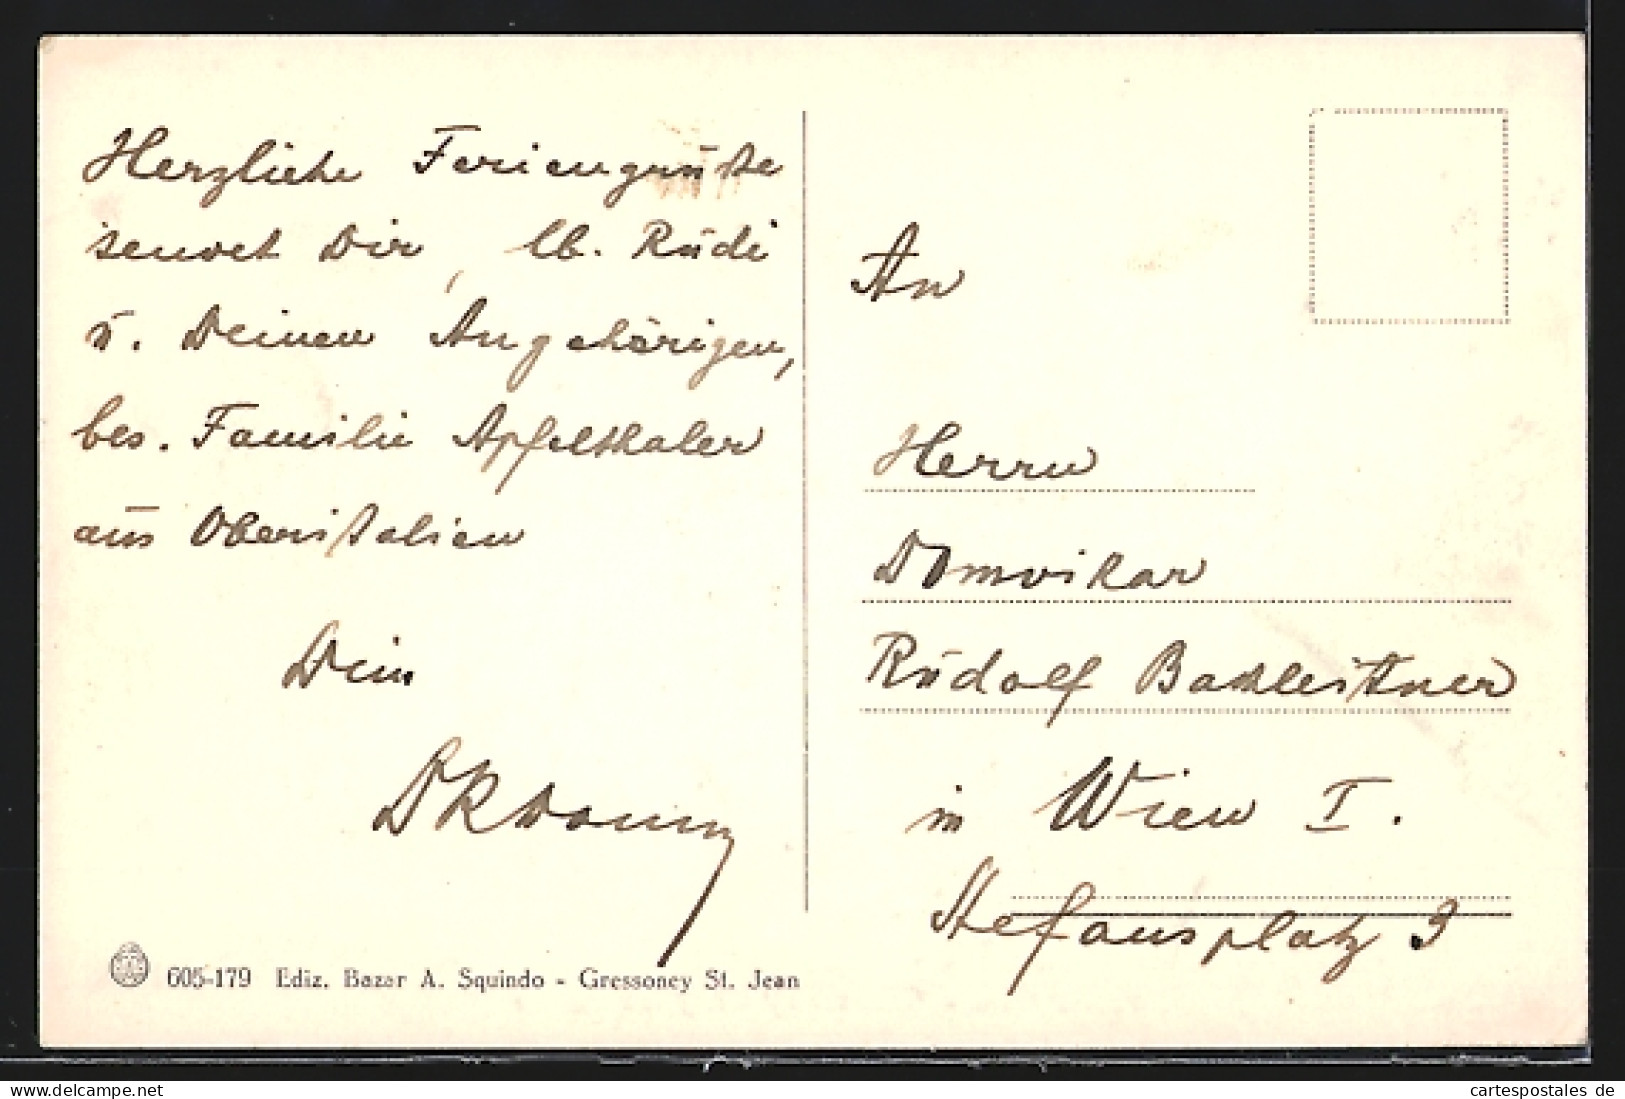 Herzliche Feriengrüße
sendet Dir, lb. Rudi
u. Deinen Angehörigen,
bes. Familie Apfelthaler
aus Oberitalien
Dein
An
Herrn
Domvikar
Rudolf Bachleitner
in Wien I.
Stefansplatz 3
605-179 Ediz. Bazar A. Squindo - Gressoney St. Jean
10490730
cartespostales.de